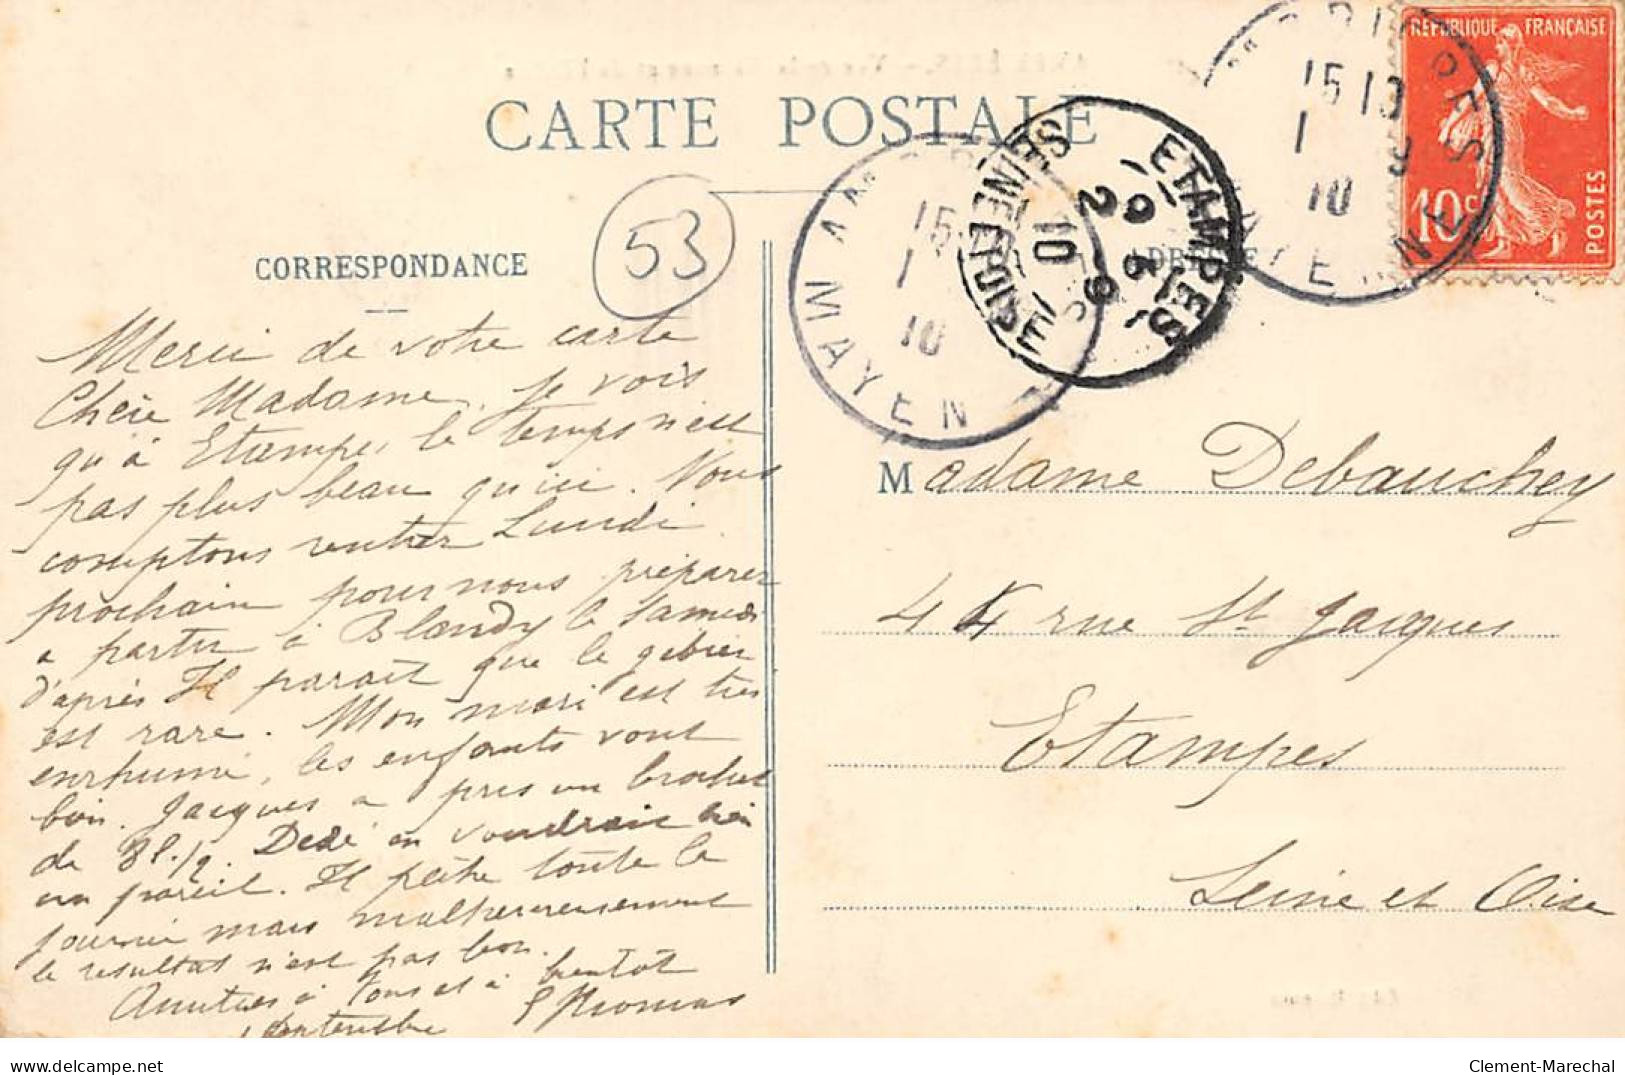 CARTE POSTALE
CORRESPONDANCE
ADRESSE
53
RÉPUBLIQUE FRANÇAISE
10c
POSTES
15 13
1 9
10
MAYENNE
15
1
10
MAYEN
ETAMPES
SEINE ET OISE
2 9
10
Merci de votre carte
Chère Madame, je vois
qu'à Etampes le temps n'est
pas plus beau qu'ici. Nous
comptons rentrer Lundi
prochain pour nous préparer
a partir à Blandy le samedi
d'après Il parait que le gibier
est rare. Mon mari est très
enrhumé, les enfants vont
bien. Jacques a pris un brochet
de 3l. 1/2. Dédé en voudrait bien
un pareil. Il pêche toute la
journée mais malheureusement
le résultat n'est pas bon.
Amitiés à tous et à bientôt
1 Septembre E Thomas
Madame Debauchey
44 rue St Jacques
Etampes
Seine et Oise
www.delcampe.net
Clement-Marechal